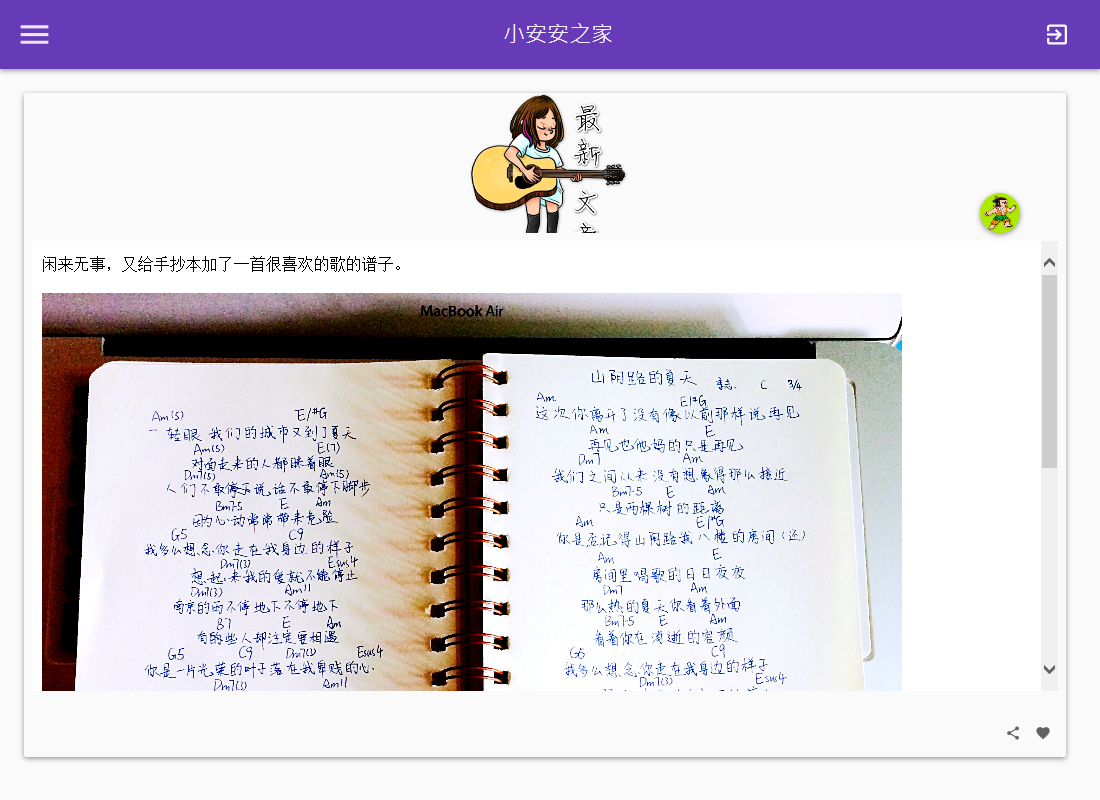 小安安之家
最新文章
闲来无事，又给手抄本加了一首很喜欢的歌的谱子。
MacBook Air
Am(5) E/#G
一转眼 我们的城市又到了夏天
Am(5) E(7)
对面走来的人都眯着眼
Dm7(5) Am(5)
人们不敢停下说话不敢停下脚步
Bm7-5 E Am
因为心动常常带来危险
G5 C9
我多么想念你走在我身边的样子
Dm7(3) Esus4
想起来我的爱就不能停止
Dm7(3) Am11
南京的雨不停地下不停地下
B7 E Am
有的些人却注定要相遇
G5 C9 Dm7(3) Esus4
你是一片光荣的叶子落在我卑贱的心
Dm7(3) Am11
山阴路的夏天 李志. C 3/4
Am E/#G
这次你离开了没有像以前那样说再见
Am E
再见也他妈的只是再见
Dm7 Am
我们之间从来没有想象得那么接近
Bm7-5 E Am
只是两棵树的距离
Am E/#G
你是否记得山阴路我八楼的房间(还)
Am E
房间里唱歌的日日夜夜
Dm7 Am
那么热的夏天你看着外面
Bm7-5 E Am
看着你在消逝的容颜
G5 C9
我多么想念你走在我身边的样子
Dm7(3) Esus4